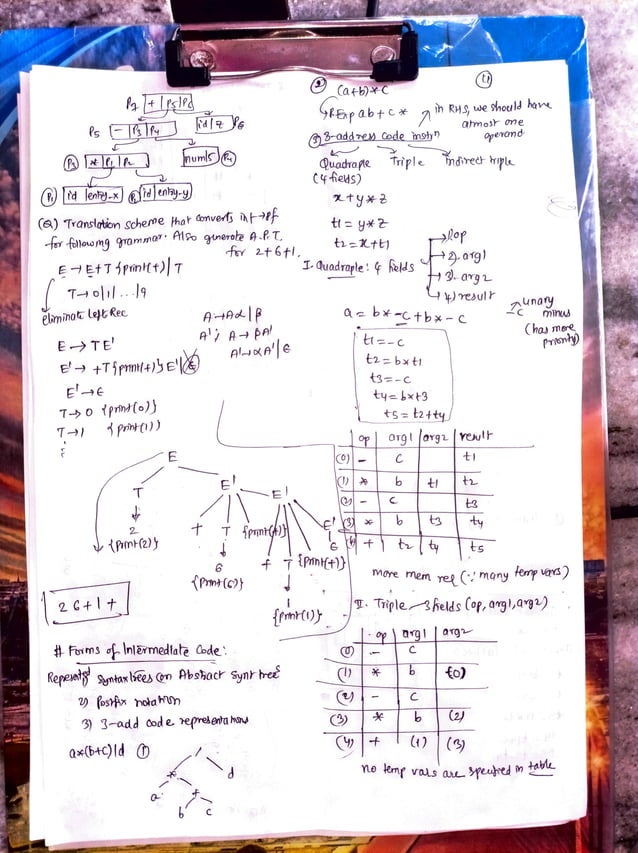 P7 + | P5 | P6
P5 - | P3 | P4
id | z P6
P3 * | P1 | P2
num | 5 P4
P1 id | entry-x
P2 id | entry-y
(Q) Translation scheme that converts inf→Pf
for following grammar. Also generate A.P.T.
for 2+6+1.
E → E+T {print(+)} | T
T → 0|1|...|9
eliminate Left Rec
E → TE'
E' → +T{print(+)}E' | Є
E' → Є
T → 0 {print(0)}
T → 1 {print(1)}
A → Aα | β
A → βA'
A' → αA' | Є
E
T E'
2
{print(2)}
+ T {print(+)} E'
6
{print(6)}
+ T {print(+)} E'
Є
1
{print(1)}
2 6 + 1 +
# Forms of Intermediate Code:
Syntax trees (or) Abstract Synt tree
2) Postfix notation
3) 3-add code representations
a*(b+c)/d ①
/
* d
a +
b c
② (a+b)*c
ab+c*
(11)
in RHS, we should have
atmost one
operand
③ 3-address code instrn
Quadraple Triple Indirect triple
(4 fields)
x+y*z
t1 = y*z
t2 = x+t1
I. Quadraple: 4 fields
1) op
2) arg1
3) arg2
4) result
a = b*-c+b*-c
-c unary
minus
(has more
priority)
t1 = -c
t2 = b*t1
t3 = -c
t4 = b*t3
t5 = t2+t4
op arg1 arg2 result
(0) - c t1
(1) * b t1 t2
(2) - c t3
(3) * b t3 t4
(4) + t2 t4 t5
more mem req (∵ many temp vars)
II. Triple → 3 fields (op, arg1, arg2)
op arg1 arg2
(0) - c
(1) * b (0)
(2) - c
(3) * b (2)
(4) + (1) (3)
no temp vars are specified in table